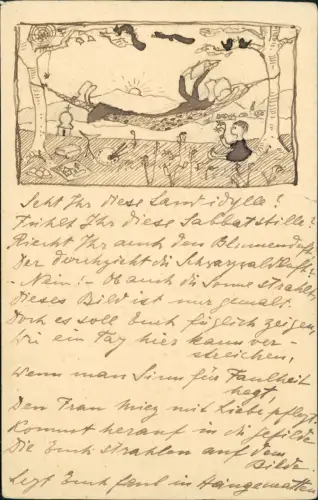 Seht Ihr diese Land-idylle?
Fühlt Ihr diese Sabbatstille?
Riecht Ihr auch den Blumenduft,
Der durchzieht die Schwarzwaldluft?
- Nein! - Ob auch die Sonne strahlt,
Dieses Bild ist nur gemalt.
Doch es soll Euch füglich zeigen,
Wie ein Tag hier kann ver-
streichen,
Wenn man Sinn für Faulheit
hegt,
Den Frau Mieg mit Liebe pflegt
Kommt herauf in die Gefilde
Die Euch strahlen auf dem
Bilde.
Legt Euch faul in Haengematten